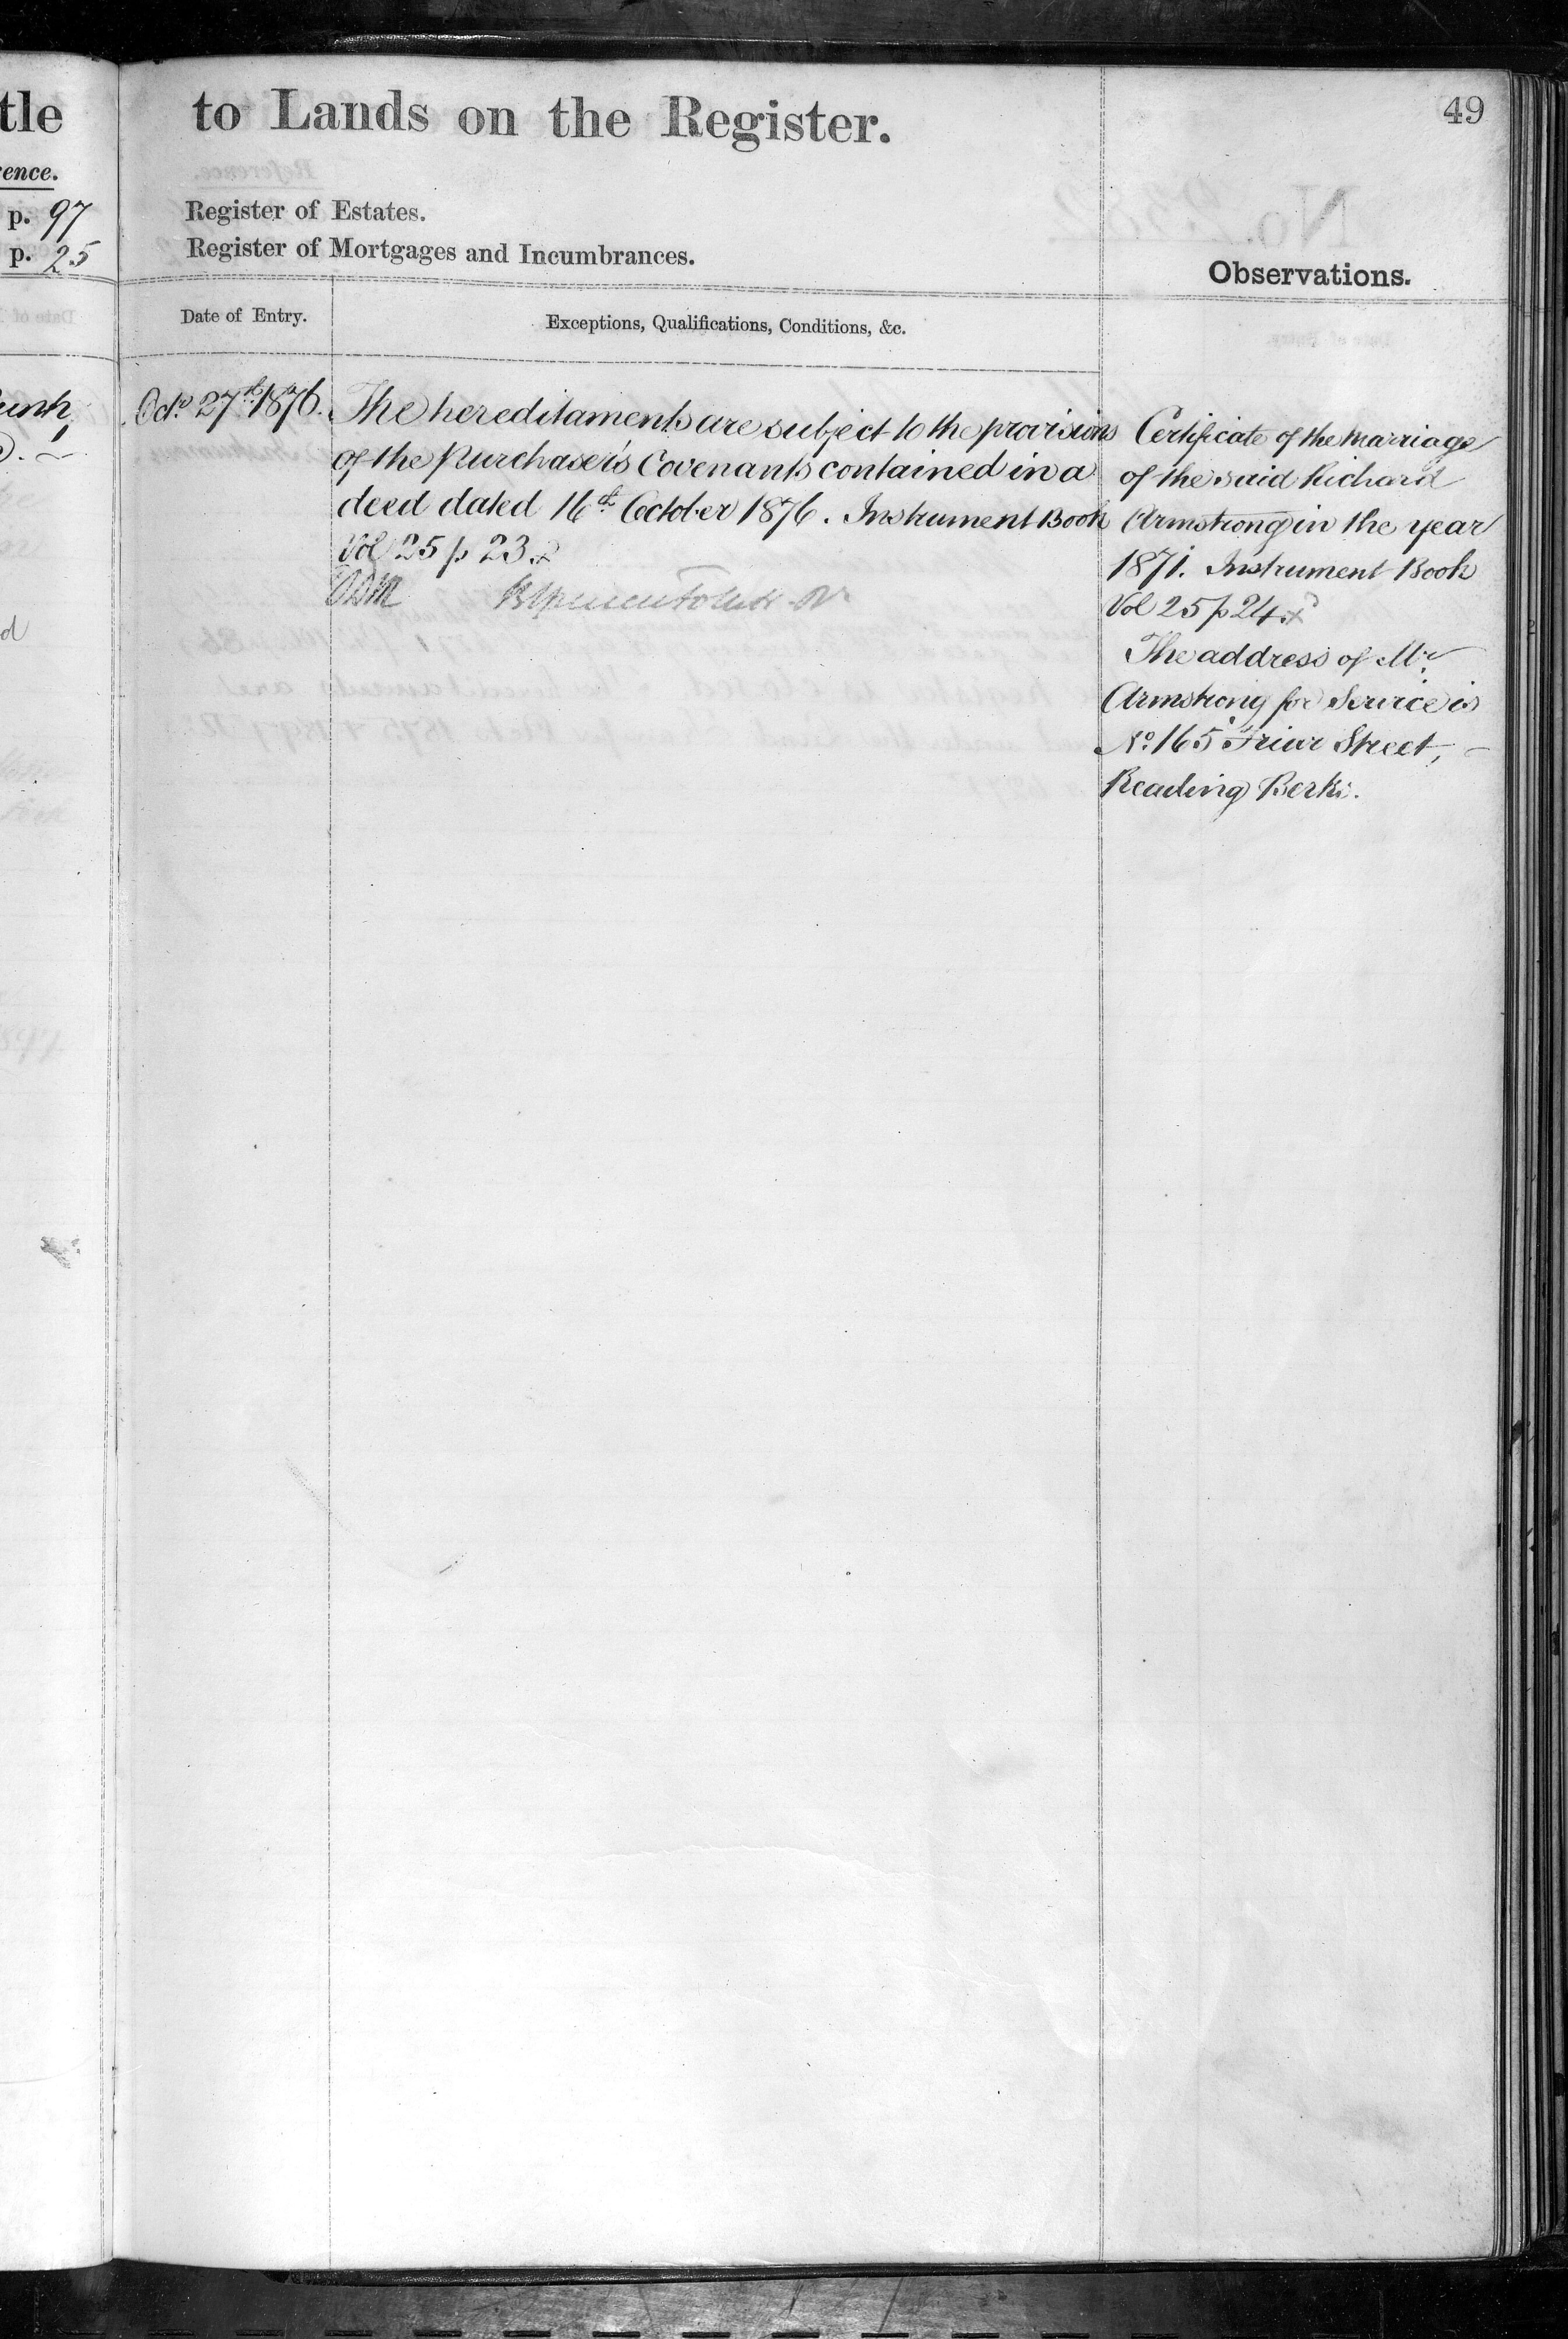 tle
ence.
p. 97
p. 25
d
to Lands on the Register.
49
Register of Estates.
Register of Mortgages and Incumbrances.
Observations.
Date of Entry.
Exceptions, Qualifications, Conditions, &c.
Octr 27th 1876.
The hereditaments are subject to the provisions
of the Purchaser's Covenants contained in a
deed dated 16th October 1876. Instrument Book
Vol 25 p 23.
Certificate of the marriage
of the said Richard
Armstrong in the year
1871. Instrument Book
Vol 25 p 24.
The address of Mr
Armstrong for Service is
No 165 Friar Street,
Reading Berks.